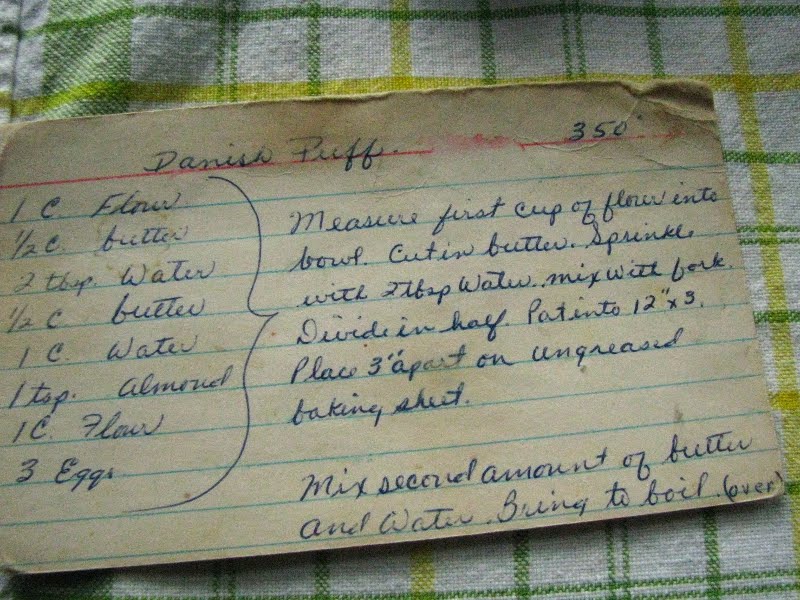 Danish Puff. 350°
1 C. Flour
½ C. butter
2 tbsp. Water
½ C butter
1 C. Water
1 tsp. Almond
1 C. Flour
3 Eggs
Measure first cup of flour into
bowl. Cut in butter. Sprinkle
with 2 tbsp Water. mix with fork.
Divide in half. Pat into 12" x 3.
Place 3" apart on ungreased
baking sheet.
Mix second amount of butter
and Water. Bring to boil. (over)